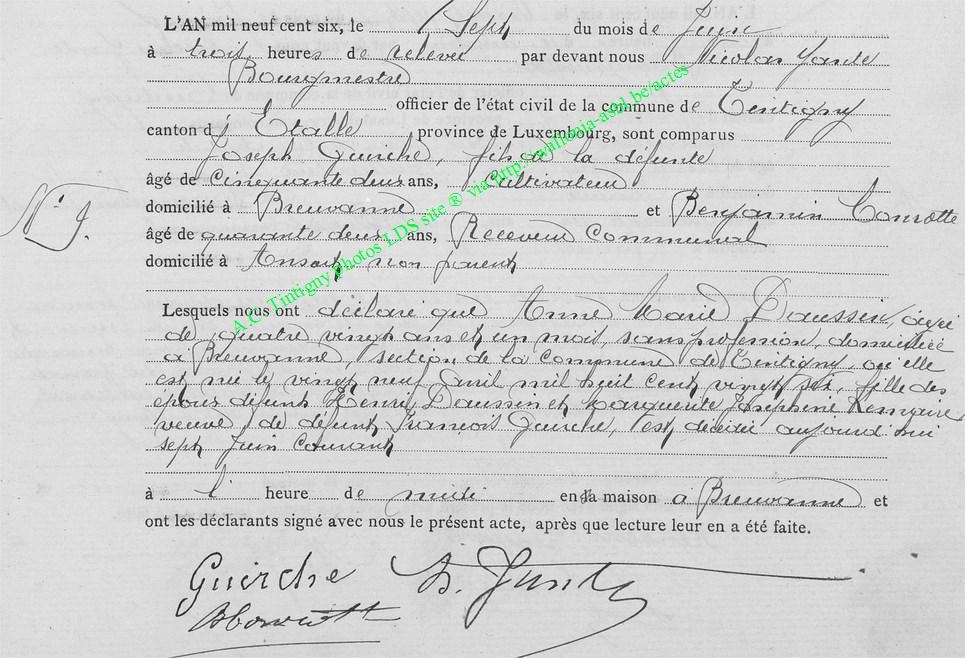 L'AN mil neuf cent six, le sept du mois de Juin
à trois heures de relevée par devant nous Nicolas
Bourgmestre
officier de l'état civil de la commune de Tintigny
canton d' Etalle province de Luxembourg, sont comparus
Joseph Guirche, fils de la défunte
âgé de Cinquante deux ans, Cultivateur
domicilié à Breuvanne et Benjamin
N° 9.
âgé de quarante deux ans, Receveur Communal
domicilié à Ansart non parent
Lesquels nous ont déclaré que Anne Marie Daussin, âgée
de quatre vingt ans et un mois, sans profession, domiciliée
à Breuvanne, section de la Commune de Tintigny, où elle
est née le vingt neuf Avril mil huit cent vingt six, fille des
époux défunts Henri Daussin et Marguerite Joséphine
veuve de défunt François Guirche, est décédée aujourd'hui
sept Juin Courant
à l' heure de midi en sa maison à Breuvanne et
ont les déclarants signé avec nous le présent acte, après que lecture leur en a été faite.
Guirche
A.G. Tintigny Photos LDS site ® via http://wallonia-asbl.be/actes